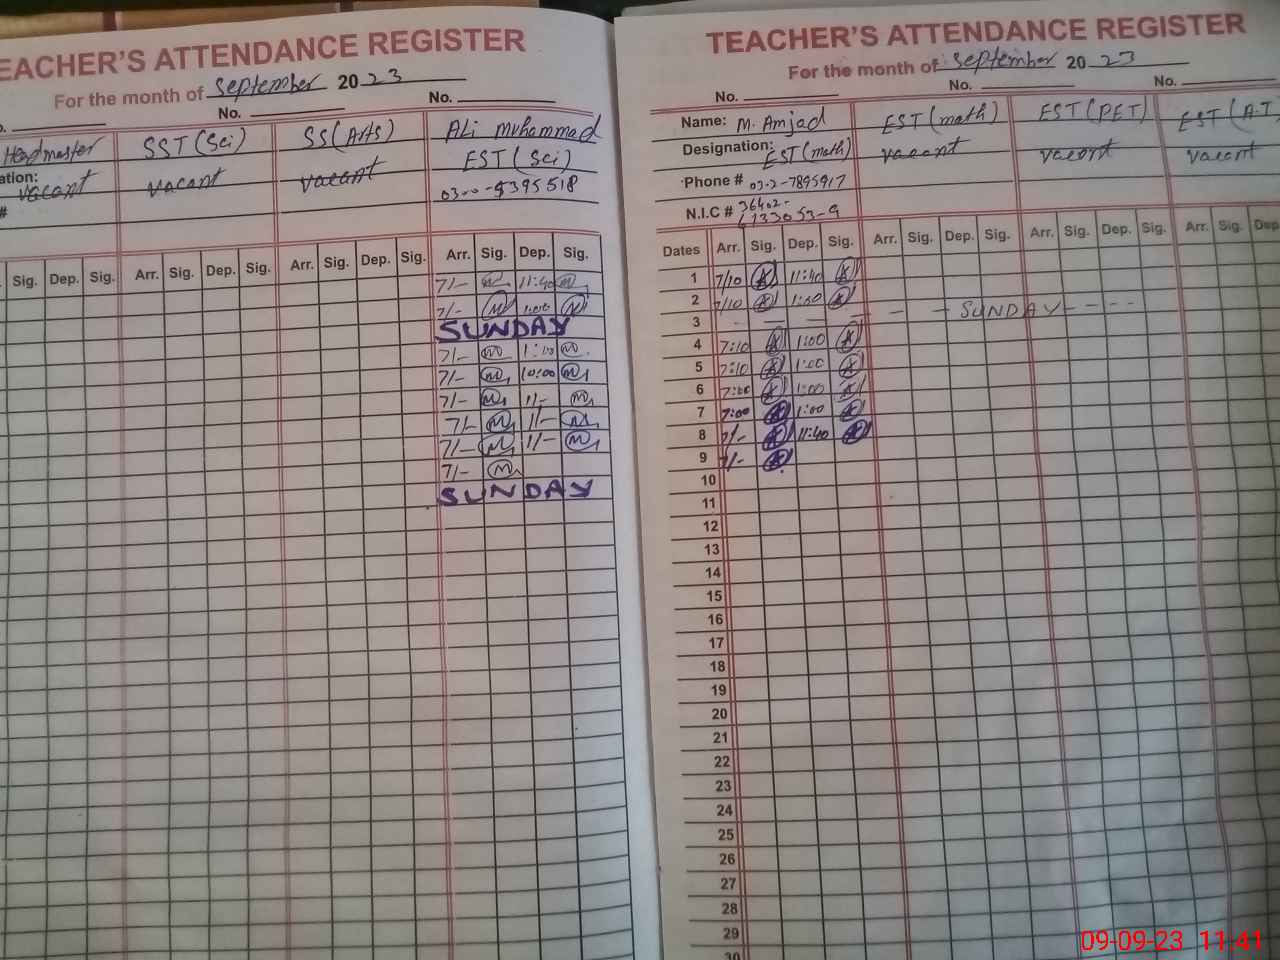 EACHER'S ATTENDANCE REGISTER
For the month of September 2023
No. No.
Headmaster SST (Sci) SS (Arts) Ali Muhammad
ation: vacant vacant vacant EST (Sci)
#
Sig. Dep. Sig. Arr. Sig. Dep. Sig. Arr. Sig. Dep. Sig. Arr. Sig. Dep. Sig.
7/- 11:40
7/- 1:00
SUNDAY
7/-
7/- 10:00
7/- 11-
7/- 11-
7/- 11-
7/-
SUNDAY
TEACHER'S ATTENDANCE REGISTER
For the month of September 2023
No. No. No.
Name: M. Amjad EST (math) EST (PET) EST (A.T.
Designation: EST (math) vacant vacant vacant
Phone # 03-2-7895917
N.I.C # 36402-
6133053-9
Dates Arr. Sig. Dep. Sig. Arr. Sig. Dep. Sig. Arr. Sig. Dep. Sig. Arr. Sig. Dep
1 7/10 11:40
2 7/10 1:00
3 - - - - - - SUNDAY - - - -
4 7:10 1:00
5 7:10 1:00
6 7:00 1:00
7 7:00 1:00
8 7/- 11:40
9 7/-
10
11
12
13
14
15
16
17
18
19
20
21
22
23
24
25
26
27
28
29
30
09-09-23 11:41